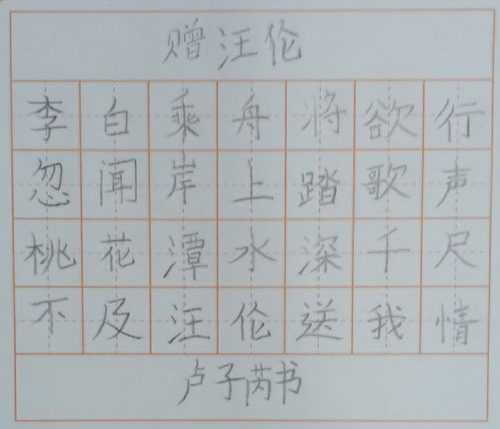 赠汪伦
李白乘舟将欲行
忽闻岸上踏歌声
桃花潭水深千尺
不及汪伦送我情
卢子芮书